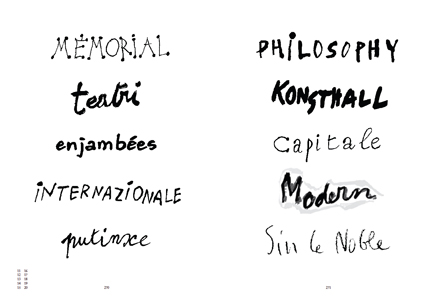 MÉMORIAL
teatri
enjambées
iNTERNAZIONALE
putinxe
PHiLOSOPHY
KONSTHALL
Capitale
Modern
Sin le Noble